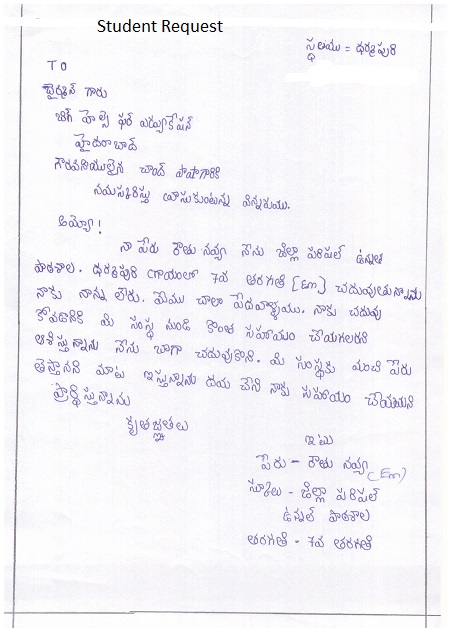 Student Request
స్థలము = ధర్మపురి
TO
ఛైర్మన్ గారు
బిగ్ హెల్ప్ ఫర్ ఎడ్యుకేషన్
హైదరాబాద్
గౌరవనీయులైన చాంద్ పాషాగారికి
నమస్కరిస్తు వ్రాసుకుంటున్న విన్నపము.
అయ్యా !
నా పేరు రౌతు నవ్య నేను జిల్లా పరిషత్ ఉన్నత
పాఠశాల. ధర్మపురి గ్రామంలో 7వ తరగతి [Em] చదువుతున్నాను
నాకు నాన్న లేరు. మేము చాలా పేదవాళ్ళము. నాకు చదువు
కోవడానికి మీ సంస్థ నుండి కొంత సహాయం చేయగలరని
ఆశిస్తున్నాను నేను బాగా చదువుకొని. మీ సంస్థకు మంచి పేరు
తెస్తానని మాట ఇస్తున్నాను దయ చేసి నాకు సహాయం చేయమని
ప్రార్థిస్తున్నాను
కృతజ్ఞతలు
ఇట్లు
పేరు - రౌతు నవ్య
(Em)
స్కూలు - జిల్లా పరిషత్
ఉన్నత పాఠశాల
తరగతి - 7వ తరగతి